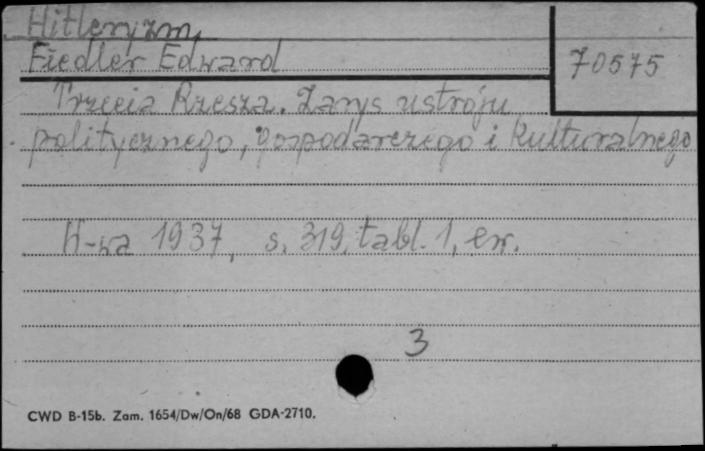 Hitleryzm.
Fiedler Edward
70575
Trzecia Rzesza. Zarys ustroju
politycznego, gospodarczego i kulturalnego
W-wa 1937, s. 319, tabl. 1, err.
3
CWD B-15b. Zam. 1654/Dw/On/68 GDA-2710.